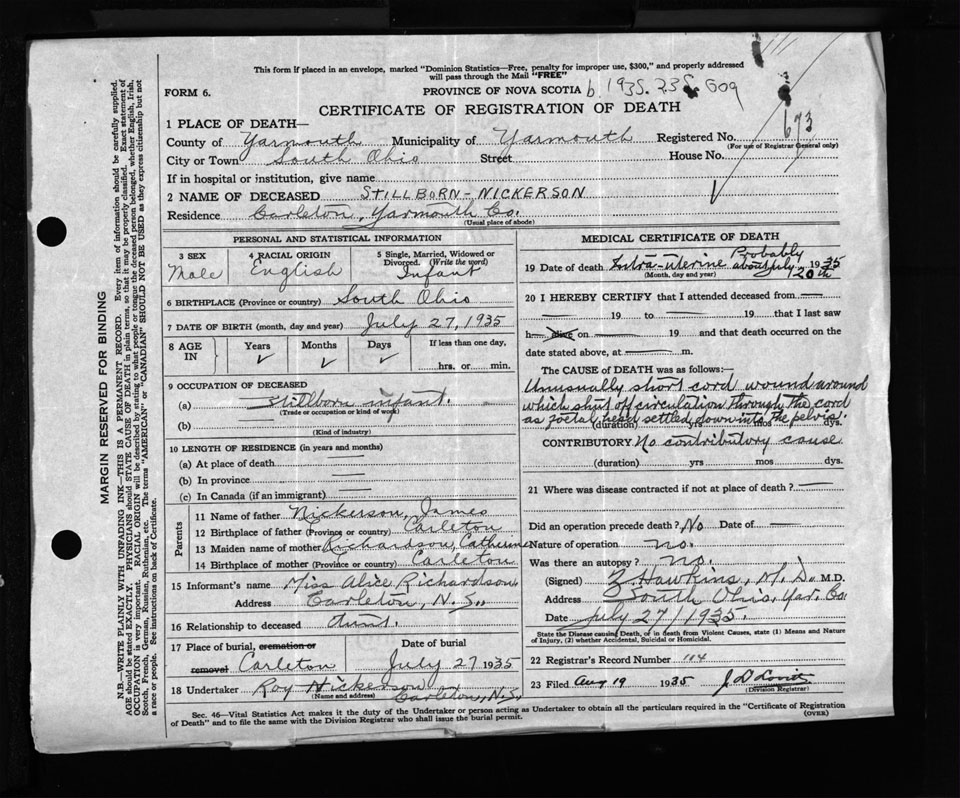 This form if placed in an envelope, marked "Dominion Statistics—Free, penalty for improper use, $300," and properly addressed
will pass through the Mail "FREE"
FORM 6.
PROVINCE OF NOVA SCOTIA b. 1935. 235. 609
CERTIFICATE OF REGISTRATION OF DEATH
1 PLACE OF DEATH—
County of Yarmouth Municipality of Yarmouth Registered No. 693
(For use of Registrar General only)
City or Town South Ohio Street House No.
If in hospital or institution, give name
2 NAME OF DECEASED STILLBORN - NICKERSON
Residence Carleton, Yarmouth Co.
(Usual place of abode)
PERSONAL AND STATISTICAL INFORMATION
3 SEX 4 RACIAL ORIGIN 5 Single, Married, Widowed or
Divorced. (Write the word)
Male English Infant
6 BIRTHPLACE (Province or country) South Ohio
7 DATE OF BIRTH (month, day and year) July 27, 1935
8 AGE IN Years Months Days If less than one day,
hrs. or min.
9 OCCUPATION OF DECEASED
(a) Stillborn infant.
(Trade or occupation or kind of work)
(b)
(Kind of industry)
10 LENGTH OF RESIDENCE (in years and months)
(a) At place of death
(b) In province
(c) In Canada (if an immigrant)
Parents
11 Name of father Nickerson, James
12 Birthplace of father (Province or country) Carleton
13 Maiden name of mother Richardson, Catherine
14 Birthplace of mother (Province or country) Carleton
15 Informant's name Miss Alice Richardson
Address Carleton, N.S.
16 Relationship to deceased Aunt.
17 Place of burial, cremation or removal Date of burial
Carleton July 27 1935
18 Undertaker Roy Nickerson
(Name and address) Carleton, N.S.
MEDICAL CERTIFICATE OF DEATH
19 Date of death Intra-uterine Probably about July 20th 1935
(Month, day and year)
20 I HEREBY CERTIFY that I attended deceased from
19 to 19 that I last saw
h alive on 19 and that death occurred on
date stated above, at m.
The CAUSE of DEATH was as follows:—
Unusually short cord wound around
which shut off circulation through the cord
as foetal head settled down into the pelvis.
(duration) yrs mos dys.
CONTRIBUTORY No contributory cause
(duration) yrs mos dys.
21 Where was disease contracted if not at place of death?
Did an operation precede death? No Date of
Nature of operation no.
Was there an autopsy? no.
(Signed) Z Hawkins, M.D. M.D.
Address South Ohio, Yar. Co.
Date July 27/1935
State the Disease causing Death, or in death from Violent Causes, state (1) Means and Nature
of Injury, (2) whether Accidental, Suicidal or Homicidal.
22 Registrar's Record Number 114
23 Filed Aug 19 1935
(Division Registrar)
Sec. 46—Vital Statistics Act makes it the duty of the Undertaker or person acting as Undertaker to obtain all the particulars required in the "Certificate of Registration
of Death" and to file the same with the Division Registrar who shall issue the burial permit.
(OVER)
MARGIN RESERVED FOR BINDING
N.B.—WRITE PLAINLY WITH UNFADING INK—THIS IS A PERMANENT RECORD. Every item of information should be carefully supplied.
AGE should be stated EXACTLY. PHYSICIANS should STATE CAUSE OF DEATH in plain terms, so that it may be properly classified. Exact statement of
OCCUPATION is very important. RACIAL ORIGIN will be described by stating to what people or tongue the deceased person belonged, whether English, Irish,
Scotch, French, German, Russian, Ruthenian, etc. The terms "AMERICAN" or "CANADIAN" SHOULD NOT BE USED as they express citizenship but not
a race or people. See instructions on back of Certificate.